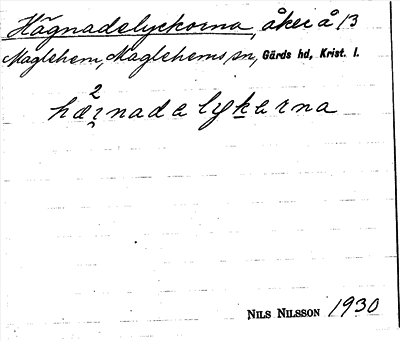 Hägnadelyckorna, åker å 13
Maglehem, Maglehems sn, Gärds hd, Krist. l.
2
hæi̯nadalykarna
NILS NILSSON 1930